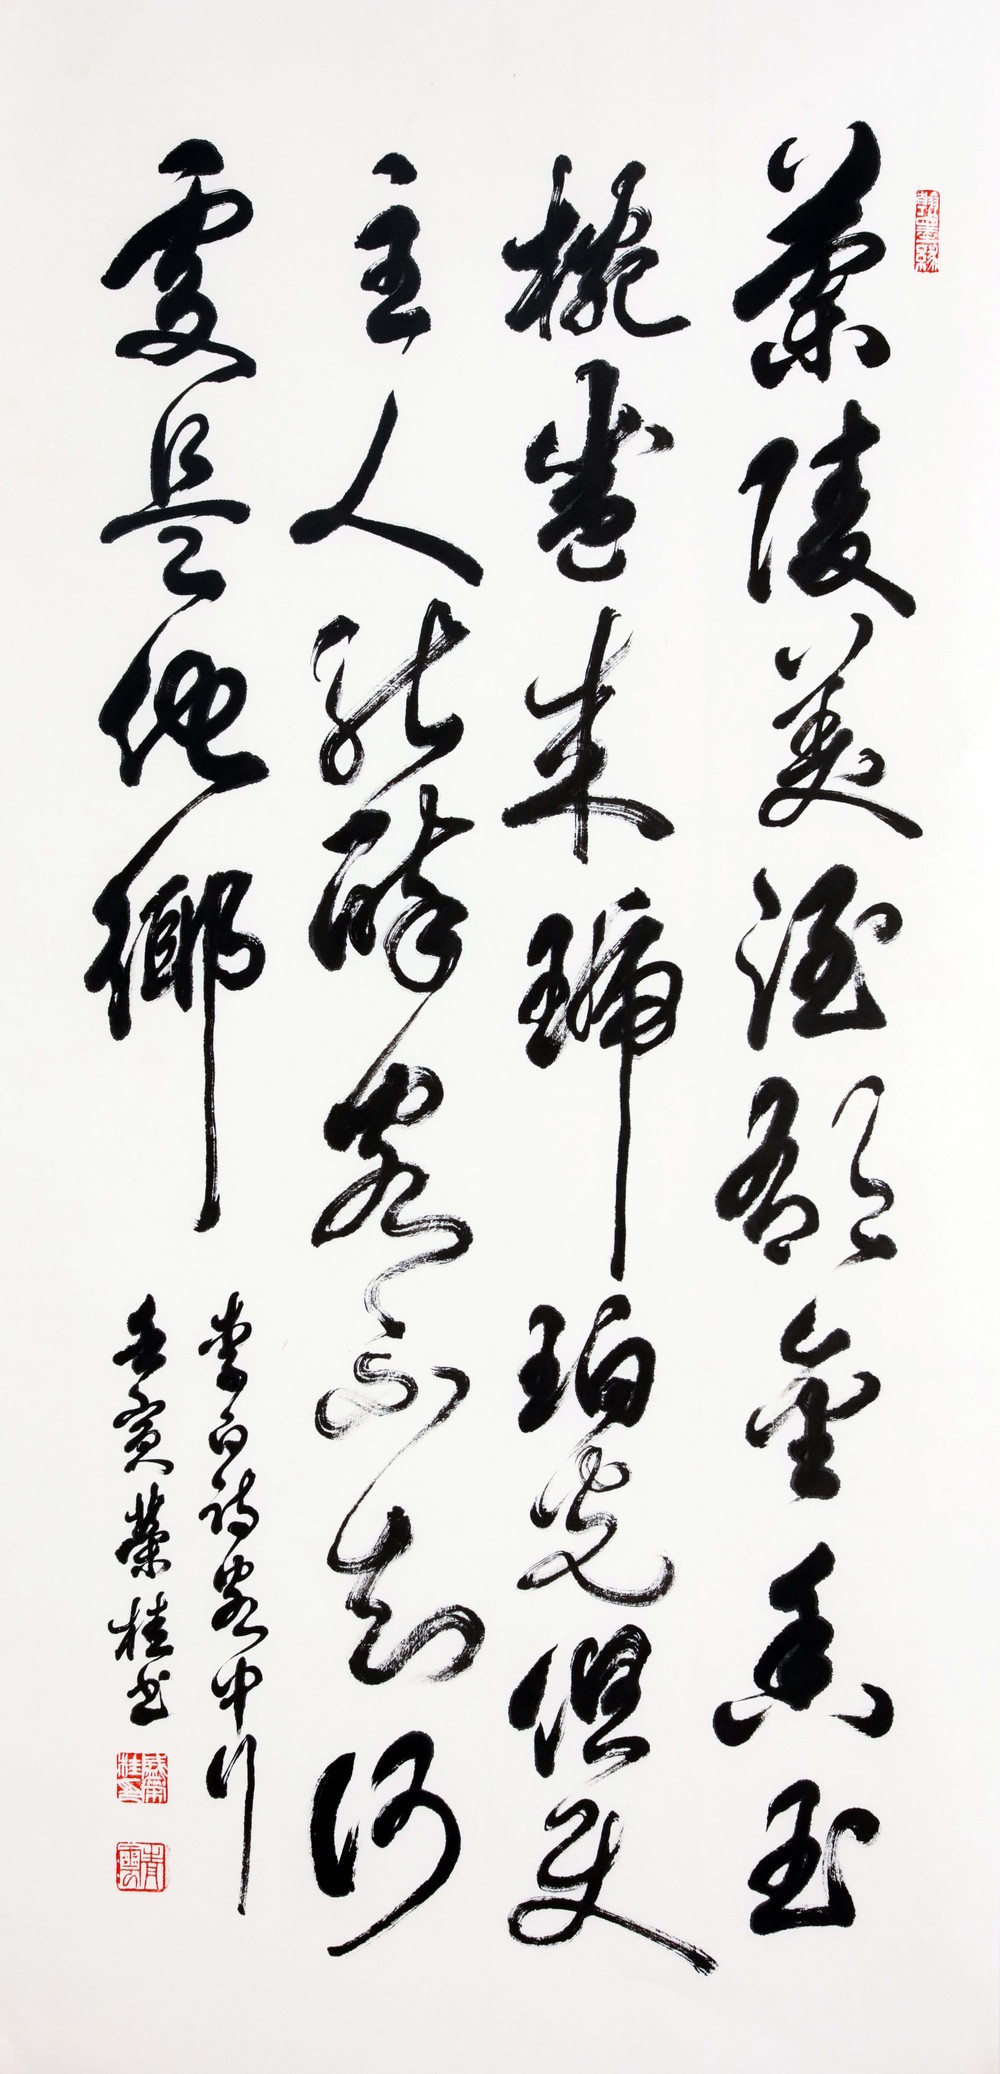 蘭陵美酒郁金香玉
椀盛来琥珀光但使
主人能醉客不知何
處是他鄉
李白詩客中行
壬寅榮桂书